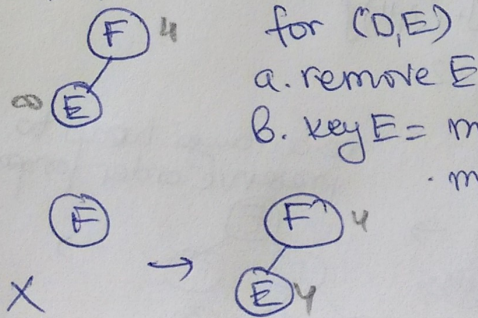 F 4
for (D,E)
∞ E
a. remove E
b. key E = m
. m
F
F 4
→
X
E 4